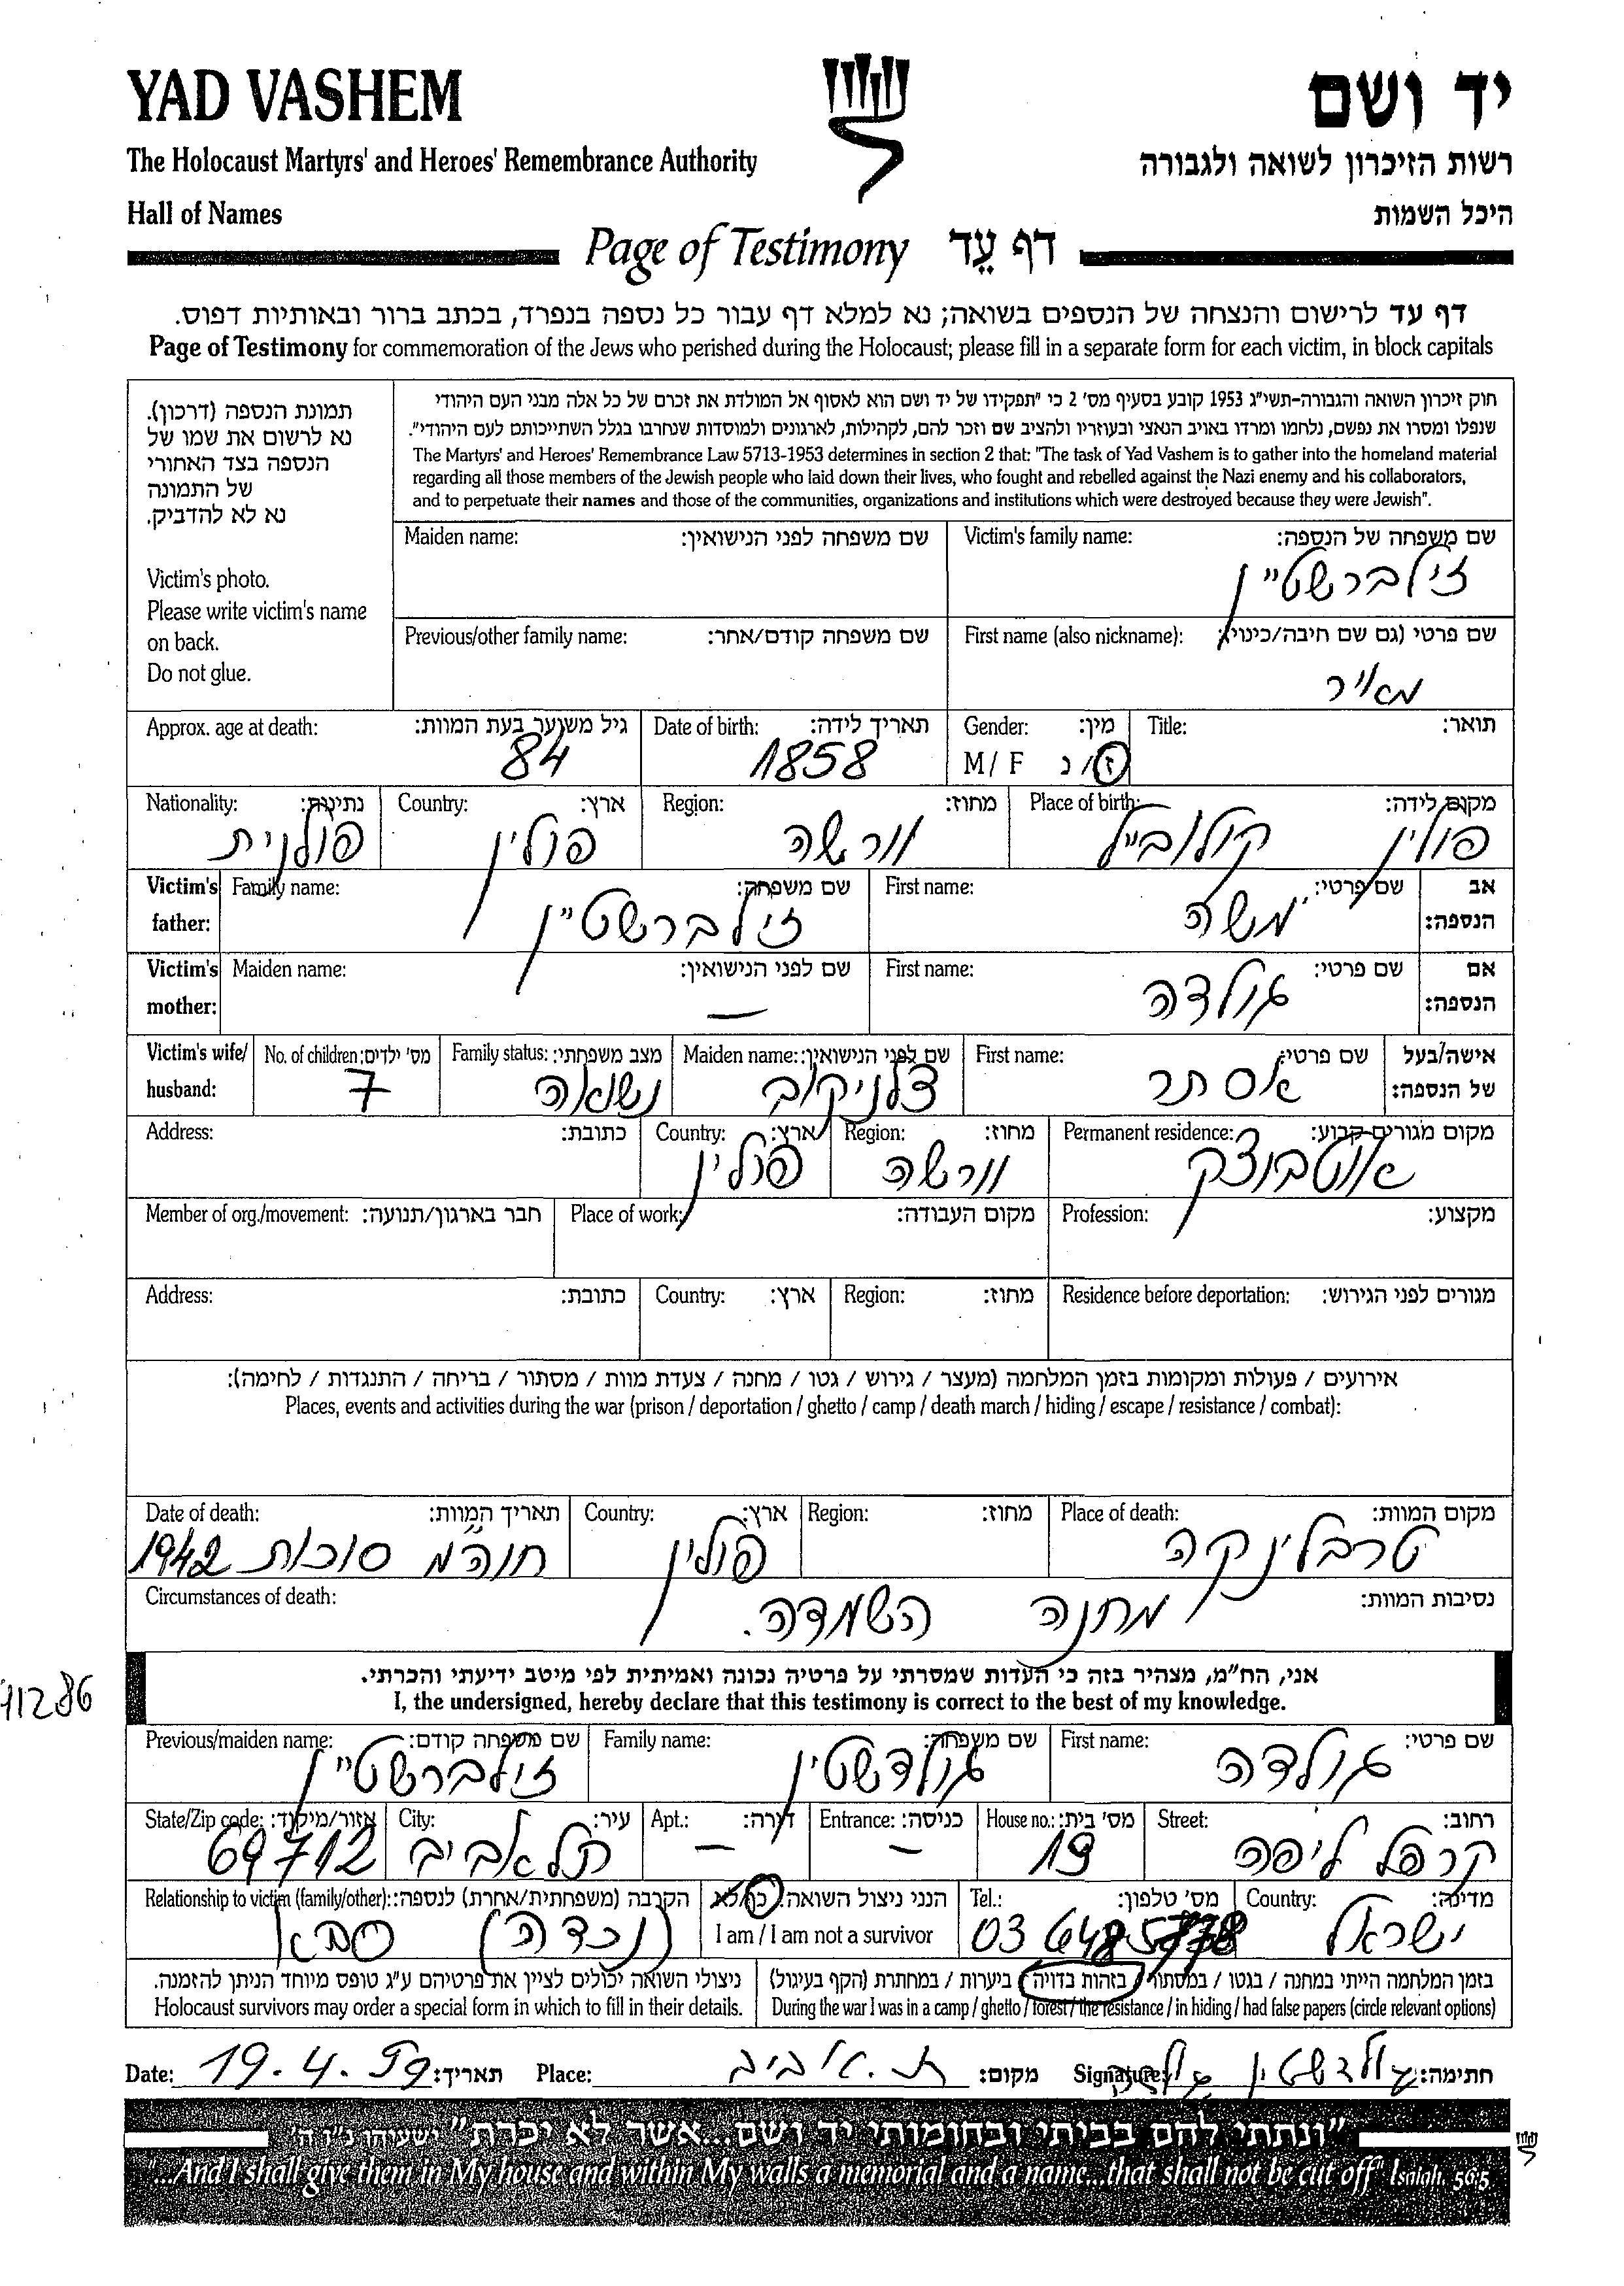 YAD VASHEM יד ושם
The Holocaust Martyrs' and Heroes' Remembrance Authority רשות הזיכרון לשואה ולגבורה
Hall of Names היכל השמות
Page of Testimony דף עֵד
דף עד לרישום והנצחה של הנספים בשואה; נא למלא דף עבור כל נספה בנפרד, בכתב ברור ובאותיות דפוס.
Page of Testimony for commemoration of the Jews who perished during the Holocaust; please fill in a separate form for each victim, in block capitals
תמונת הנספה (דרכון).
נא לרשום את שמו של
הנספה בצד האחורי
של התמונה
נא לא להדביק.
Victim's photo.
Please write victim's name
on back.
Do not glue.
חוק זיכרון השואה והגבורה-תשי"ג 1953 קובע בסעיף מס' 2 כי "תפקידו של יד ושם הוא לאסוף אל המולדת את זכרם של כל אלה מבני העם היהודי
שנפלו ומסרו את נפשם, נלחמו ומרדו באויב הנאצי ובעוזריו ולהציב שם וזכר להם, לקהילות, לארגונים ולמוסדות שנחרבו בגלל השתייכותם לעם היהודי".
The Martyrs' and Heroes' Remembrance Law 5713-1953 determines in section 2 that: "The task of Yad Vashem is to gather into the homeland material
regarding all those members of the Jewish people who laid down their lives, who fought and rebelled against the Nazi enemy and his collaborators,
and to perpetuate their names and those of the communities, organizations and institutions which were destroyed because they were Jewish".
Maiden name: שם משפחה לפני הנישואין: Victim's family name: שם משפחה של הנספה:
זילברשטיין
Previous/other family name: שם משפחה קודם/אחר: First name (also nickname): שם פרטי (גם שם חיבה/כינוי):
מאיר
Approx. age at death: גיל משוער בעת המוות: Date of birth: תאריך לידה: Gender: מין: Title: תואר:
84 1858 M/ F ז/נ
Nationality: נתינות: Country: ארץ: Region: מחוז: Place of birth: מקום לידה:
פולנית פולין וורשה קולוביל פולין
Victim's father: Family name: שם משפחה: First name: שם פרטי: אב הנספה:
זילברשטיין משה
Victim's mother: Maiden name: שם לפני הנישואין: First name: שם פרטי: אם הנספה:
— גולדה
Victim's wife/ husband: No. of children: מס' ילדים: Family status: מצב משפחתי: Maiden name: שם לפני הנישואין: First name: שם פרטי: אישה/בעל של הנספה:
7 נשואה צלניקוב אסתר
Address: כתובת: Country: ארץ: Region: מחוז: Permanent residence: מקום מגורים קבוע:
פולין וורשה אוטבוצק
Member of org./movement: חבר בארגון/תנועה: Place of work: מקום העבודה: Profession: מקצוע:
Address: כתובת: Country: ארץ: Region: מחוז: Residence before deportation: מגורים לפני הגירוש:
אירועים / פעולות ומקומות בזמן המלחמה (מעצר / גירוש / גטו / מחנה / צעדת מוות / מסתור / בריחה / התנגדות / לחימה):
Places, events and activities during the war (prison / deportation / ghetto / camp / death march / hiding / escape / resistance / combat):
Date of death: תאריך המוות: Country: ארץ: Region: מחוז: Place of death: מקום המוות:
חוה"מ סוכות 1942 פולין טרבלינקה
Circumstances of death: נסיבות המוות:
מחנה השמדה.
אני, הח"מ, מצהיר בזה כי העדות שמסרתי על פרטיה נכונה ואמיתית לפי מיטב ידיעתי והכרתי.
I, the undersigned, hereby declare that this testimony is correct to the best of my knowledge.
71286
Previous/maiden name: שם משפחה קודם: Family name: שם משפחה: First name: שם פרטי:
זילברשטיין גולדשטין גולדה
State/Zip code: אזור/מיקוד: City: עיר: Apt.: דירה: Entrance: כניסה: House no.: מס' בית: Street: רחוב:
69712 תל אביב — — 19 קרפל ליפה
Relationship to victim (family/other): הקרבה (משפחתית/אחרת) לנספה: הנני ניצול השואה: כן/לא Tel.: מס' טלפון: Country: מדינה:
סבא (נכדה) I am / I am not a survivor 03 6485778 ישראל
ניצולי השואה יכולים לציין את פרטיהם ע"ג טופס מיוחד הניתן להזמנה. בזמן המלחמה הייתי במחנה / בגטו / במסתור / בזהות בדויה / ביערות / במחתרת (הקף בעיגול)
Holocaust survivors may order a special form in which to fill in their details. During the war I was in a camp / ghetto / forest / the resistance / in hiding / had false papers (circle relevant options)
Date: 19.4.99 תאריך: Place: ת.אביב מקום: Signature: גולדשטין גולדה חתימה:
"ונתתי להם בביתי ובחומותי יד ושם...אשר לא יכרת" ישעיהו נ"ו ה'
"...And I shall give them in My house and within My walls a memorial and a name...that shall not be cut off" Isaiah, 56:5